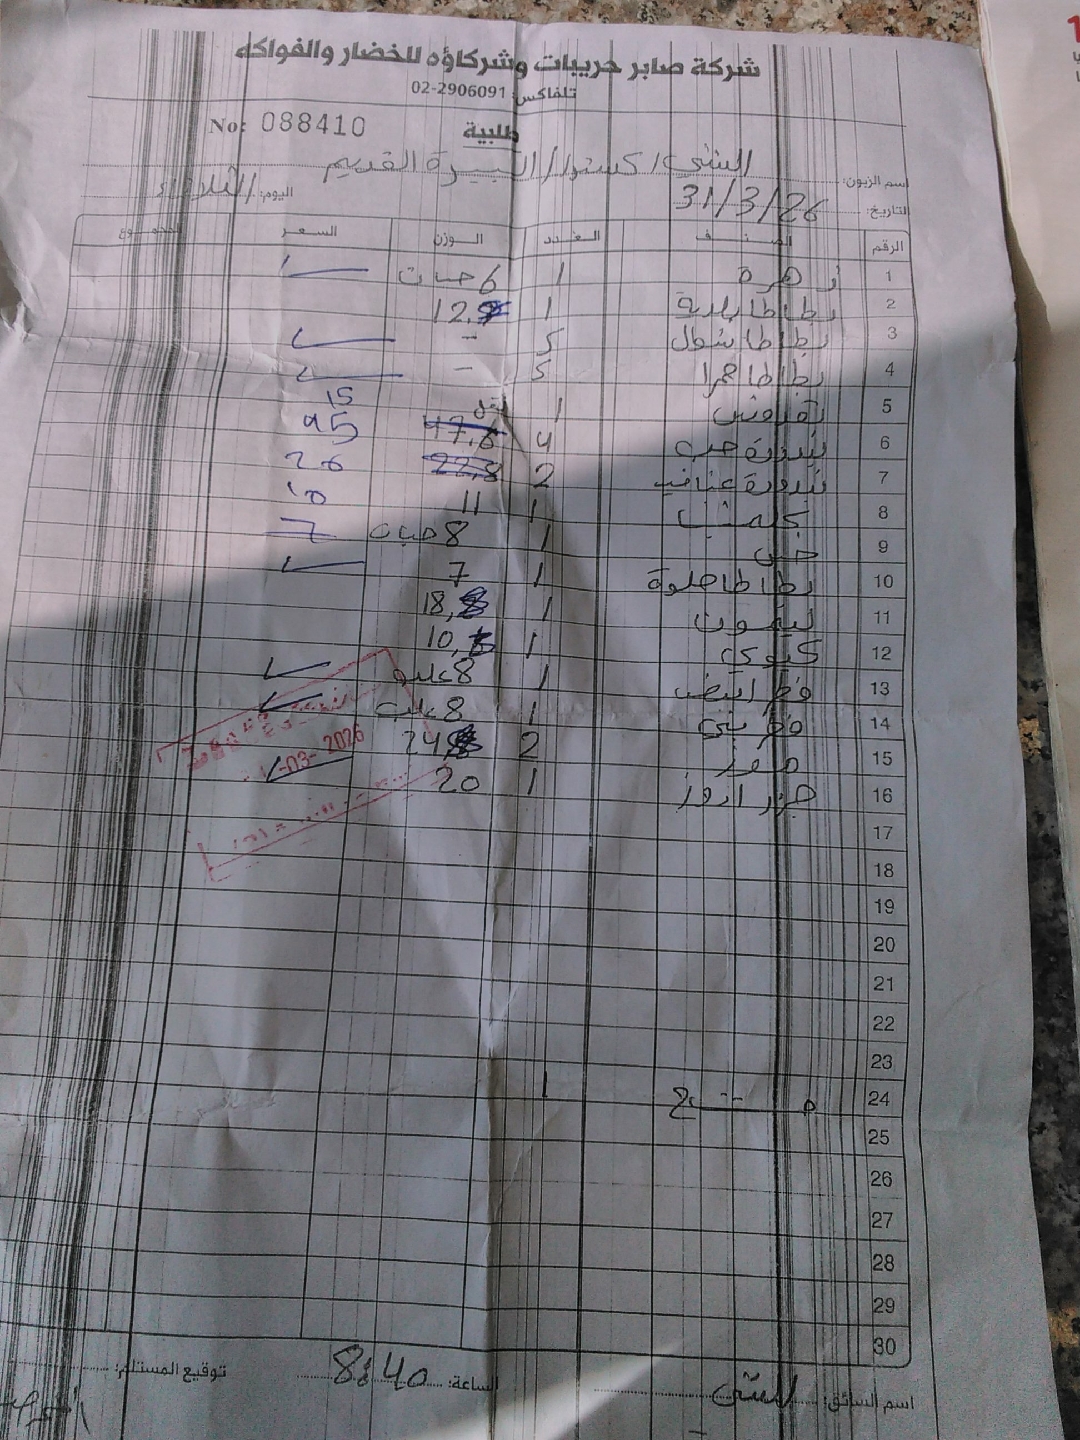 شركة صابر حريبات وشركاؤه للخضار والفواكه
تلفاكس: 02-2906091
طلبية No: 088410
اسم الزبون: الشني / كستنا / البيرة القديم
التاريخ: 31/3/26 اليوم: الثلاثاء
الرقم الصنف العدد الوزن السعر المجموع
1 زهرة 1 6 حبات
2 بطاطا بلدية 1 12,
3 بطاطا شوال 5 -
4 بطاطا حمرا 5 -
5 بقدونس 1 15
6 بندورة حب 4 47,6 95
7 بندورة عناقيد 2 22,8 26
8 1 11 10
9 خس 1 8 حبات 7
10 بطاطا حلوة 1 7
11 ليمون 1 18,
12 كيوي 1 10,
13 فطر ابيض 1 8 علب
14 فطر بني 1 8 علب
15 موز 2 24
16 جزر اروز 1 20
17
18
19
20
21
22
23
24 1
25
26
27
28
29
30
-03- 2026
اسم السائق: الساعة: 8:40 توقيع المستلم: